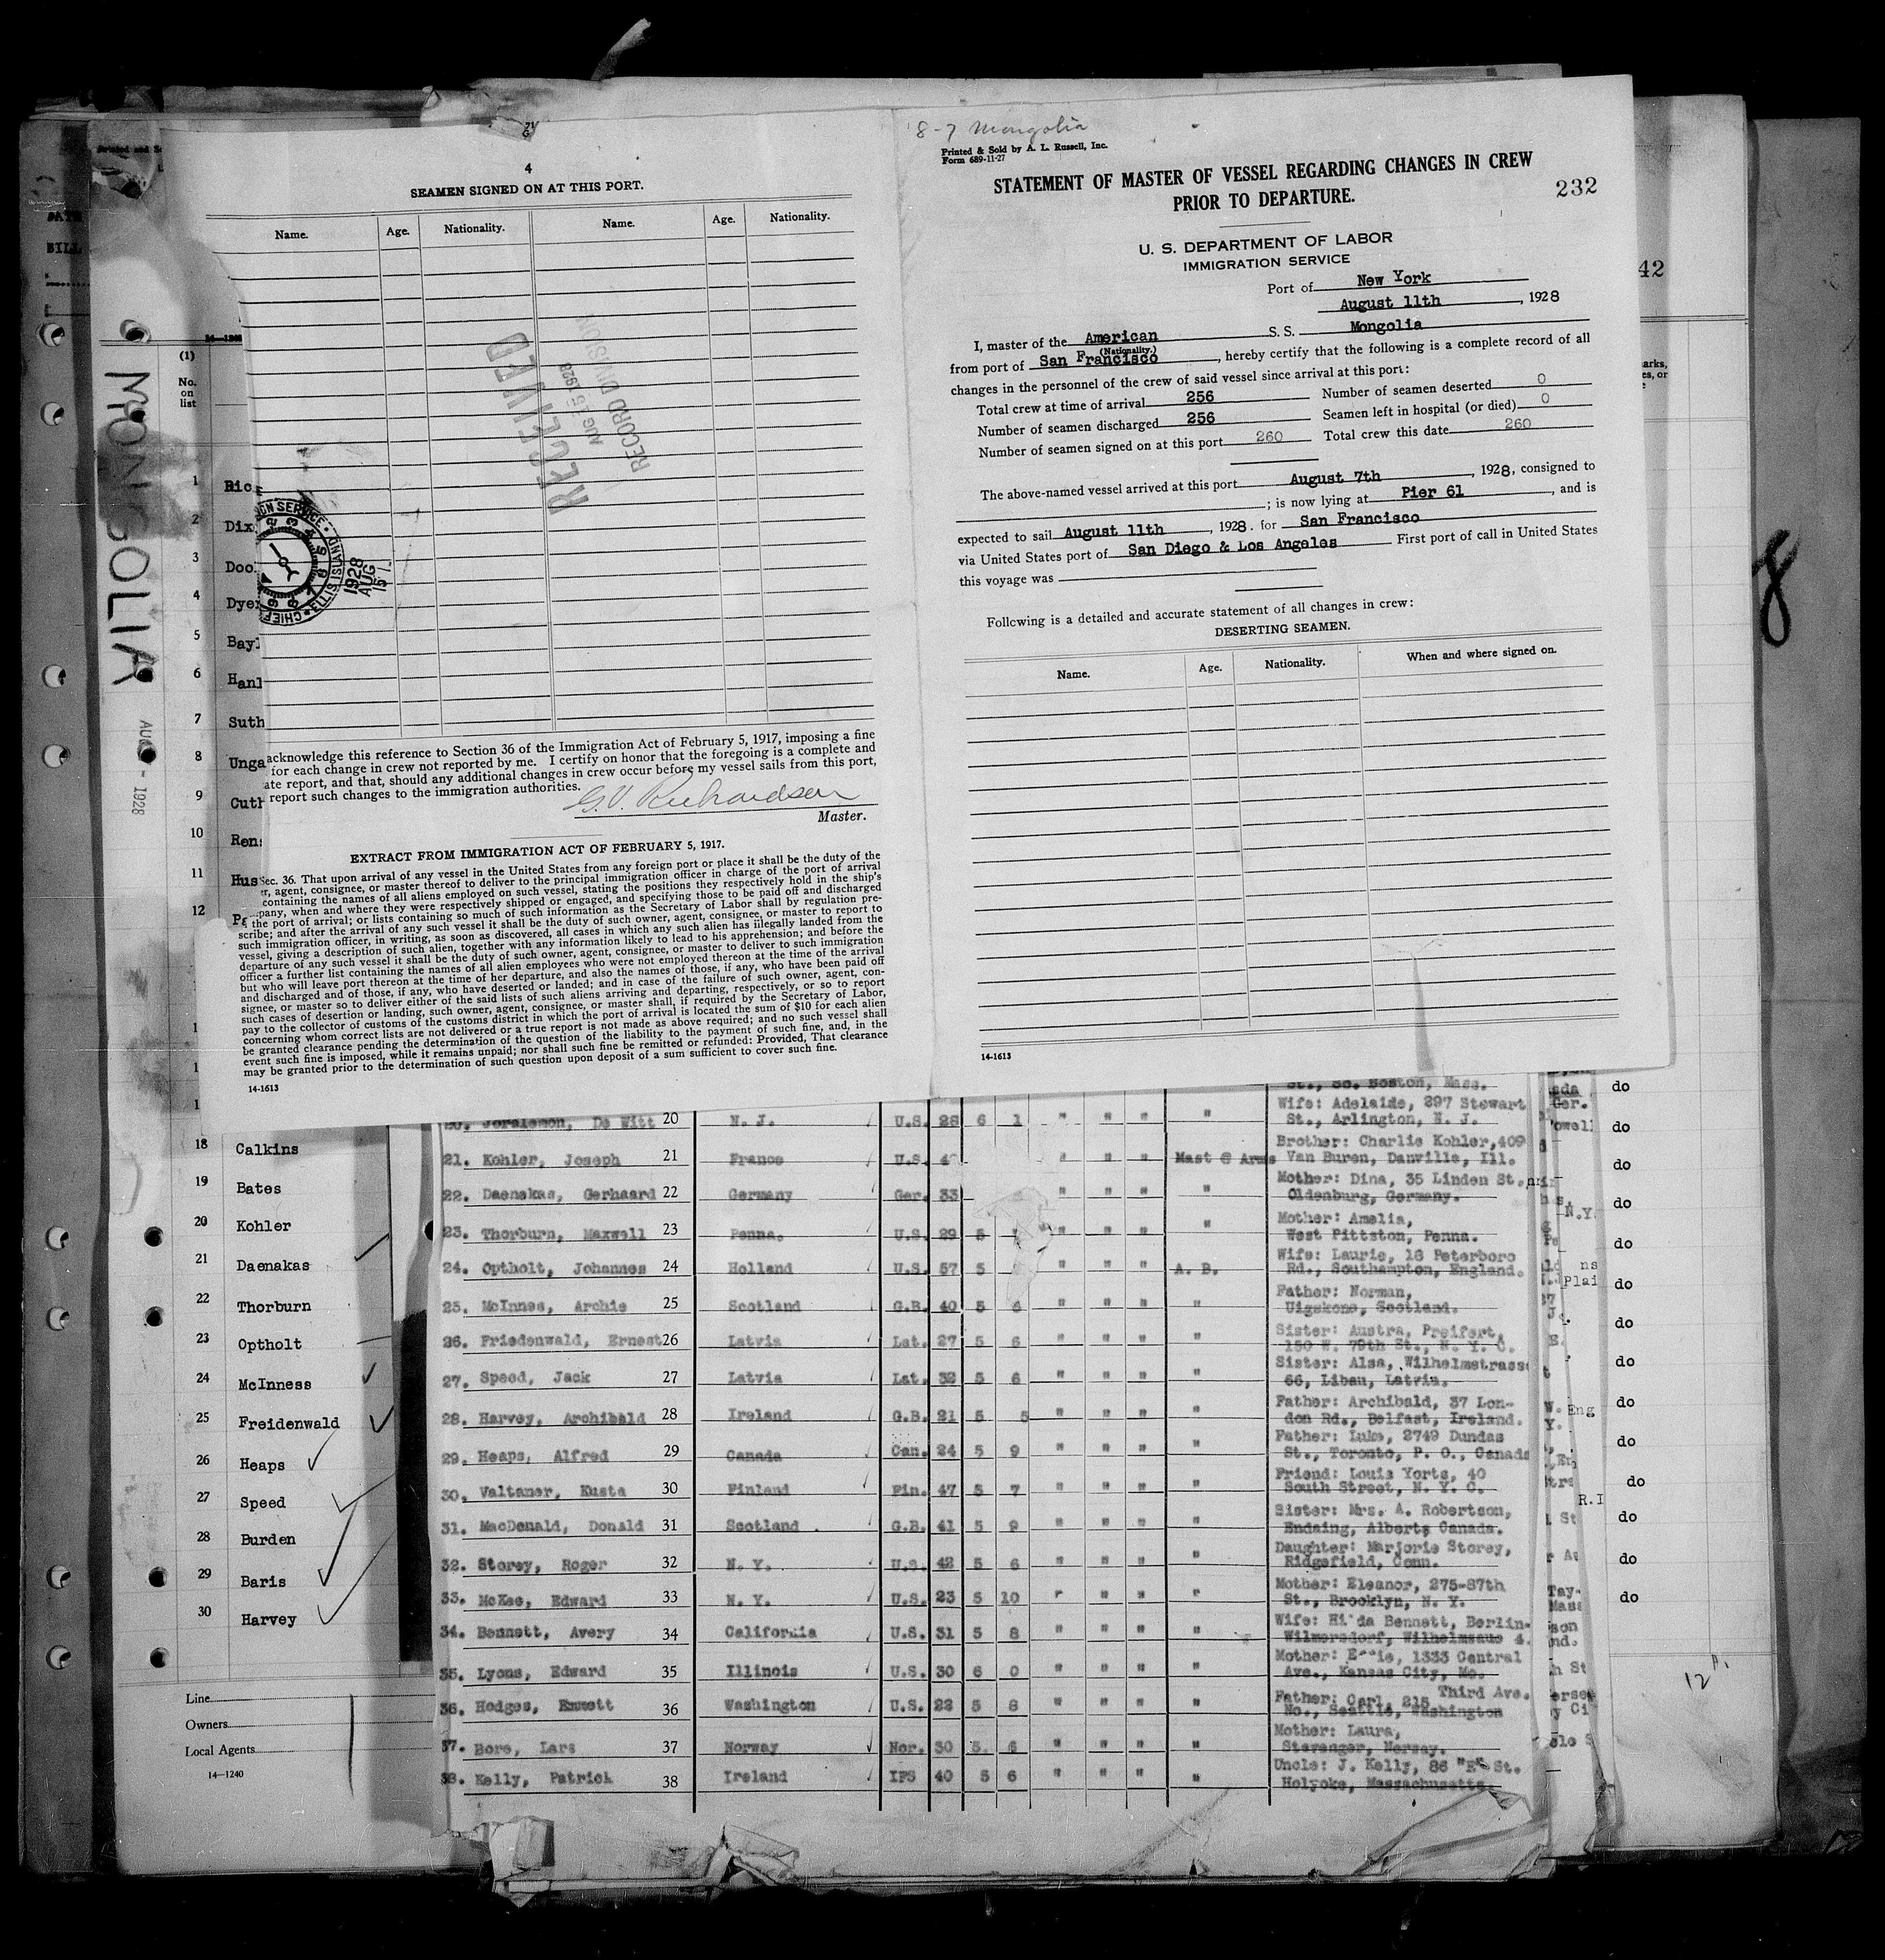 4
SEAMEN SIGNED ON AT THIS PORT.
Name. Age. Nationality. Name. Age. Nationality.
RECEIVED
AUG 15 1928
RECORD DIVISION
acknowledge this reference to Section 36 of the Immigration Act of February 5, 1917, imposing a fine
for each change in crew not reported by me. I certify on honor that the foregoing is a complete and
ate report, and that, should any additional changes in crew occur before my vessel sails from this port,
report such changes to the immigration authorities.
G. V. Richardson
Master.
EXTRACT FROM IMMIGRATION ACT OF FEBRUARY 5, 1917.
Sec. 36. That upon arrival of any vessel in the United States from any foreign port or place it shall be the duty of the
r, agent, consignee, or master thereof to deliver to the principal immigration officer in charge of the port of arrival
containing the names of all aliens employed on such vessel, stating the positions they respectively hold in the ship's
pany, when and where they were respectively shipped or engaged, and specifying those to be paid off and discharged
the port of arrival; or lists containing so much of such information as the Secretary of Labor shall by regulation pre-
scribe; and after the arrival of any such vessel it shall be the duty of such owner, agent, consignee, or master to report to
such immigration officer, in writing, as soon as discovered, all cases in which any such alien has illegally landed from the
vessel, giving a description of such alien, together with any information likely to lead to his apprehension; and before the
departure of any such vessel it shall be the duty of such owner, agent, consignee, or master to deliver to such immigration
officer a further list containing the names of all alien employees who were not employed thereon at the time of the arrival
but who will leave port thereon at the time of her departure, and also the names of those, if any, who have been paid off
and discharged and of those, if any, who have deserted or landed; and in case of the failure of such owner, agent, con-
signee, or master so to deliver either of the said lists of such aliens arriving and departing, respectively, or so to report
such cases of desertion or landing, such owner, agent, consignee, or master shall, if required by the Secretary of Labor,
pay to the collector of customs of the customs district in which the port of arrival is located the sum of $10 for each alien
concerning whom correct lists are not delivered or a true report is not made as above required; and no such vessel shall
be granted clearance pending the determination of the question of the liability to the payment of such fine, and, in the
event such fine is imposed, while it remains unpaid; nor shall such fine be remitted or refunded: Provided, That clearance
may be granted prior to the determination of such question upon deposit of a sum sufficient to cover such fine.
14-1613
8-7 Mongolia
Printed & Sold by A. L. Russell, Inc.
Form 689-11-27
STATEMENT OF MASTER OF VESSEL REGARDING CHANGES IN CREW
PRIOR TO DEPARTURE.
232
U. S. DEPARTMENT OF LABOR
IMMIGRATION SERVICE
Port of New York
August 11th, 1928
I, master of the American S. S. Mongolia
(Nationality.)
from port of San Francisco, hereby certify that the following is a complete record of all
changes in the personnel of the crew of said vessel since arrival at this port:
Total crew at time of arrival 256 Number of seamen deserted 0
Number of seamen discharged 256 Seamen left in hospital (or died) 0
Number of seamen signed on at this port 260 Total crew this date 260
The above-named vessel arrived at this port August 7th, 1928, consigned to
; is now lying at Pier 61, and is
expected to sail August 11th, 1928. for San Francisco
via United States port of San Diego & Los Angeles First port of call in United States
this voyage was
Following is a detailed and accurate statement of all changes in crew:
DESERTING SEAMEN.
Name. Age. Nationality. When and where signed on.
14-1613
MONGOLIA
AUG - 1928
(1)
No.
on
list
1 Ric
2 Dix
3 Doo
4 Dye
5 Bay
6 Han
7 Suth
8 Unga
9 Cuth
10 Ren
11 Hus
12
CHIEF ELLIS ISLAND
1928
AUG
15
42
8
St., So. Boston, Mass.
20. Joralemon, De Witt 20 N. J. U.S. 28 6 1 " " " " Wife: Adelaide, 297 Stewart
St., Arlington, N. J.
21. Kohler, Joseph 21 France U.S. " " " Mast @ Arms Brother: Charlie Kohler, 409
Van Buren, Danville, Ill.
22. Daenakas, Gerhaard 22 Germany Ger. 33 " " " " Mother: Dina, 35 Linden St.
Oldenburg, Germany.
23. Thorburn, Maxwell 23 Penna. U.S. 29 5 " " " " Mother: Amelia,
West Pittston, Penna.
24. Optholt, Johannes 24 Holland U.S. 57 5 " " " A. B. Wife: Laurie, 18 Peterboro
Rd., Southampton, England.
25. McInnes, Archie 25 Scotland G.B. 40 5 6 " " " " Father: Norman,
Uigskone, Scotland.
26. Friedenwald, Ernest 26 Latvia Lat. 27 5 6 " " " " Sister: Austra, Preifert,
150 W. 79th St., N. Y. C.
27. Speed, Jack 27 Latvia Lat. 32 5 6 " " " " Sister: Alsa, Wilhelmstrasse
66, Libau, Latvia.
28. Harvey, Archibald 28 Ireland G.B. 21 5 5 " " " " Father: Archibald, 37 Lon-
don Rd., Belfast, Ireland.
29. Heaps, Alfred 29 Canada Can. 24 5 9 " " " " Father: Luke, 2749 Dundas
St., Toronto, P. O., Canada
30. Valtaner, Kusta 30 Finland Fin. 47 5 7 " " " " Friend: Louis Yorts, 40
South Street, N. Y. C.
31. MacDonald, Donald 31 Scotland G.B. 41 5 9 " " " " Sister: Mrs. A. Robertson,
Endaing, Alberta Canada.
32. Storey, Roger 32 N. Y. U.S. 42 5 6 " " " " Daughter: Marjorie Storey,
Ridgefield, Conn.
33. McKee, Edward 33 N. Y. U.S. 23 5 10 " " " " Mother: Eleanor, 275-87th
St., Brooklyn, N. Y.
34. Bennett, Avery 34 California U.S. 31 5 8 " " " " Wife: Hilda Bennett, Berlin-
Wilmersdorf, Wilhelmsaue 4.
35. Lyons, Edward 35 Illinois U.S. 30 6 0 " " " " Mother: 1333 Central
Ave., Kansas City, Mo.
36. Hodges, Emmett 36 Washington U.S. 22 5 8 " " " " Father: Carl, 215 Third Ave.
No., Seattle, Washington
37. Bore, Lars 37 Norway Nor. 30 5 6 " " " " Mother: Laura,
Stavanger, Norway.
38. Kelly, Patrick 38 Ireland IFS 40 5 6 " " " " Uncle: J. Kelly, 86 "E" St.
Holyoke, Massachusetts.
18 Calkins
19 Bates
20 Kohler
21 Daenakas
22 Thorburn
23 Optholt
24 McInness
25 Freidenwald
26 Heaps
27 Speed
28 Burden
29 Baris
30 Harvey
Line
Owners
Local Agents
14—1240
do
do
do
do
do
do
do
do
do
do
do
do
do
do